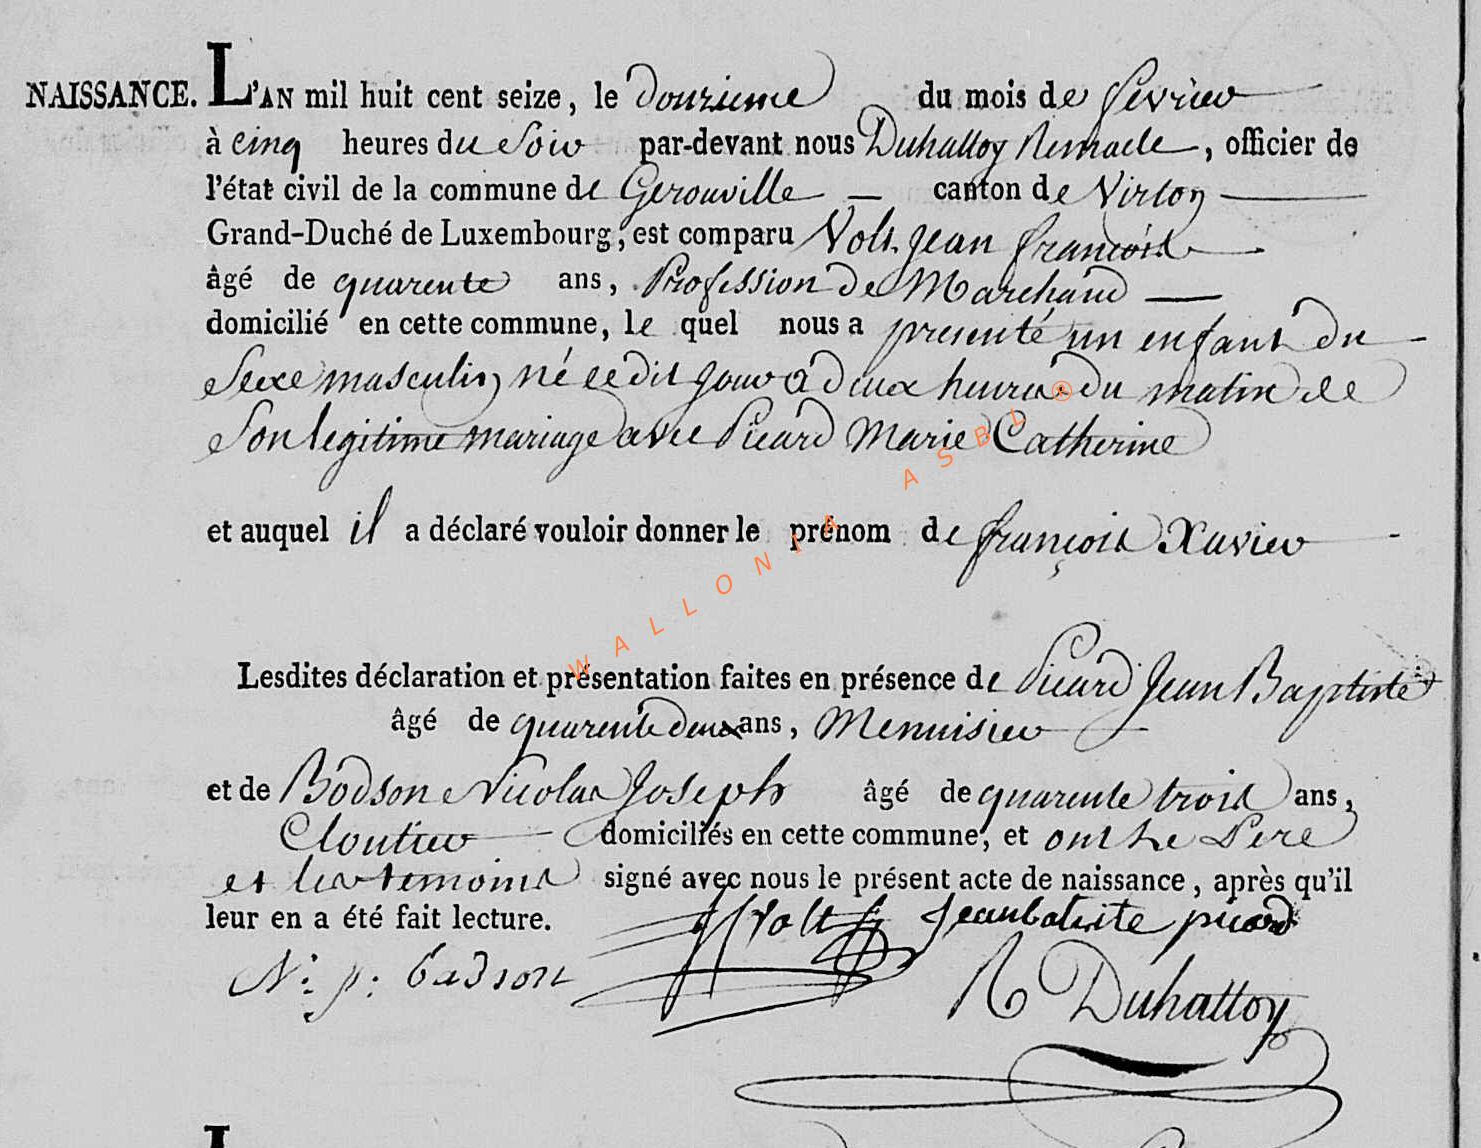 NAISSANCE. L'AN mil huit cent seize, le douzieme du mois de fevrier
à cinq heures du Soir par-devant nous Duhattoy Remacle, officier de
l'état civil de la commune de Gerouville — canton de Virton —
Grand-Duché de Luxembourg, est comparu Volt jean françois
âgé de quarente ans, Profession de Marchand —
domicilié en cette commune, le quel nous a presenté un enfant du
Sexe masculin né cedit jour a deux heures du matin de
Son legitime mariage avec Picard Marie Catherine
et auquel il a déclaré vouloir donner le prénom de françois Xavier
Lesdites déclaration et présentation faites en présence de Picard Jean Baptiste
âgé de quarente deux ans, Menuisier
et de Bodson Nicolas Joseph âgé de quarente trois ans,
Cloutier domiciliés en cette commune, et ont Le Pere
et les temoins signé avec nous le présent acte de naissance, après qu'il
leur en a été fait lecture. Jf volt Jeanbatiste picard
N: j: badson R Duhattoy
WALLONIA ASBL ®